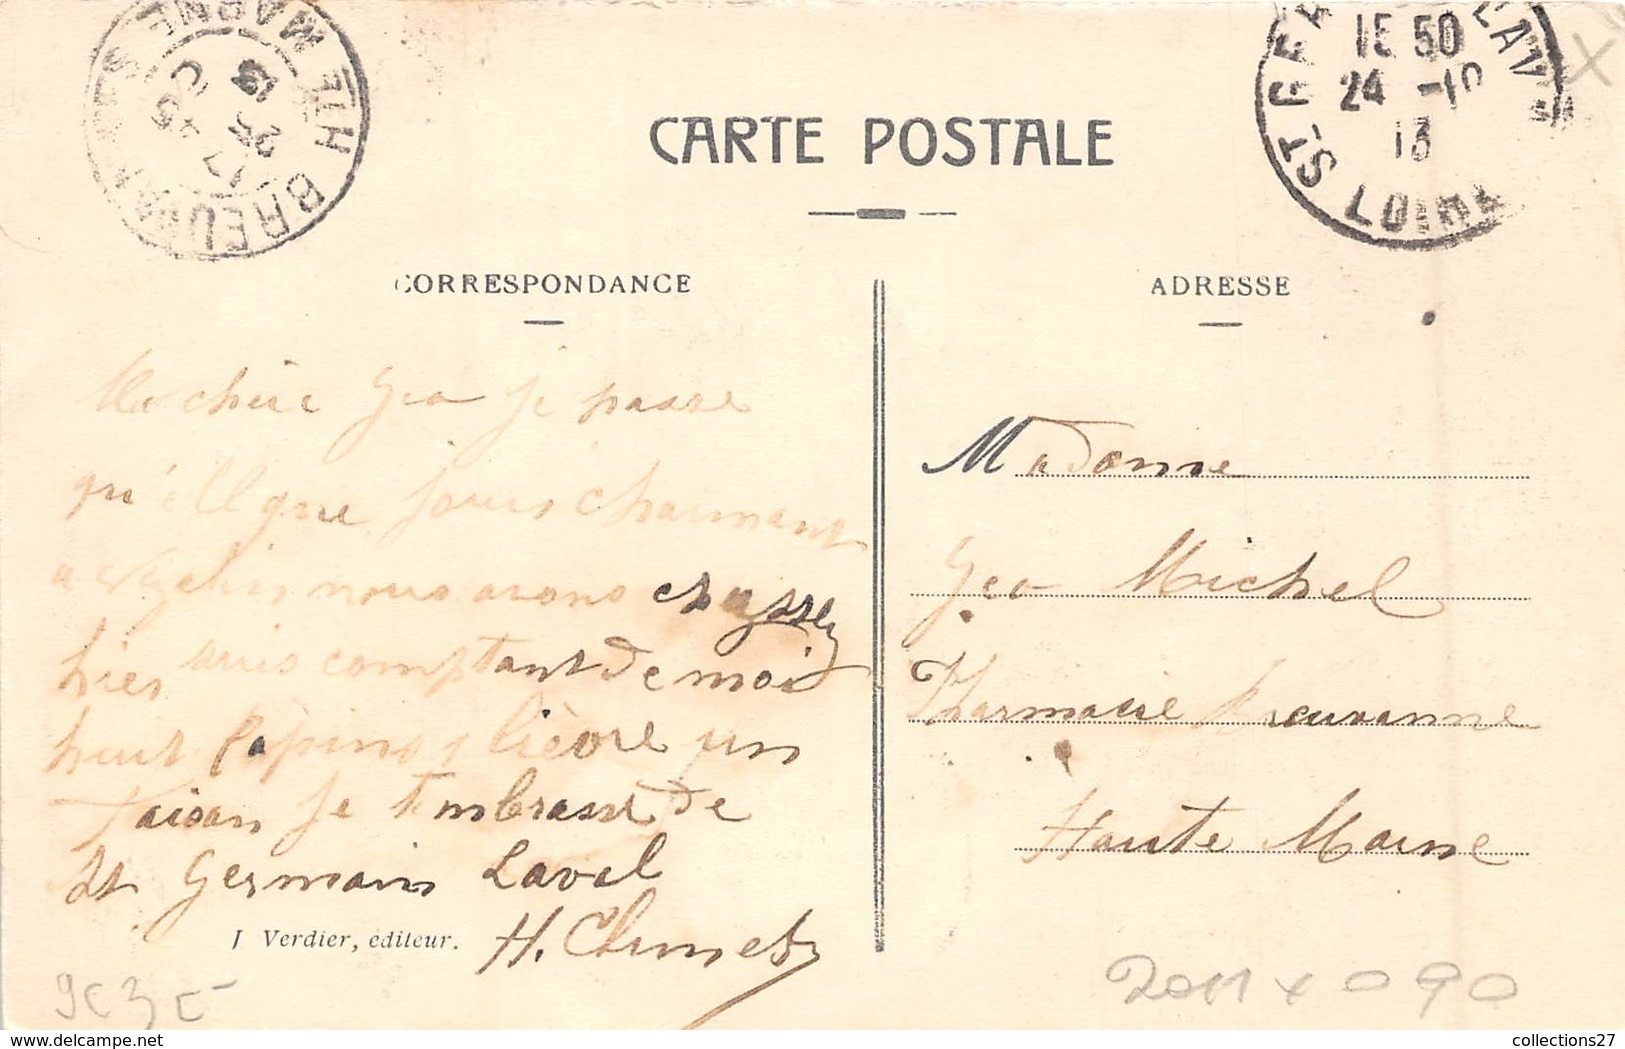 CARTE POSTALE
HTE MARNE
15 50
24 -10
13
ST-GER LAVAL
LOIRE
25
13
CORRESPONDANCE
ADRESSE
Ma chère Geo je passe
qu'elque jours charmant
a nous avons chasser
hier sans comptant de moi
huit lapins 1 lièvre un
faisan je t'embrasse de
St Germain Laval
H.
J Verdier, éditeur.
Madame
Geo Michel
Pharmacie Breuvanne
Haute Marne
2011 x 090
collections27